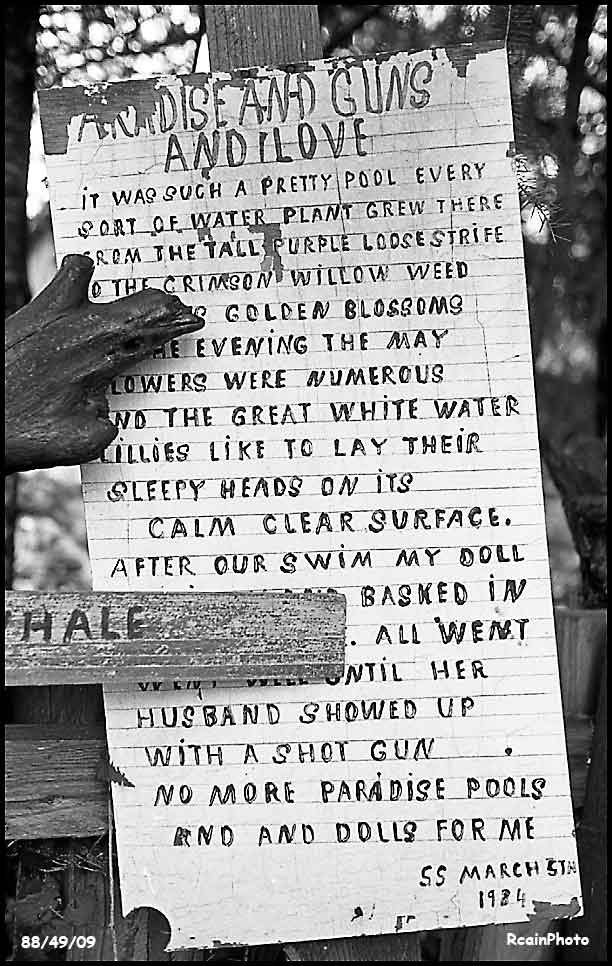 PARADISE AND GUNS
AND I LOVE
iT WAS SUCH A PRETTY POOL EVERY
SORT OF WATER PLANT GREW THERE
FROM THE TALL PURPLE LOOSESTRIFE
O THE CRIMSON WILLOW WEED
GOLDEN BLOSSOMS
HE EVENING THE MAY
LOWERS WERE NUMEROUS
ND THE GREAT WHITE WATER
LILLIES LIKE TO LAY THEIR
SLEEPY HEADS ON ITS
CALM CLEAR SURFACE.
AFTER OUR SWIM MY DOLL
BASKED IN
HALE
. ALL WENT
WENT WELL UNTIL HER
HUSBAND SHOWED UP
WITH A SHOT GUN .
NO MORE PARADISE POOLS
AND AND DOLLS FOR ME
SS MARCH 5TH
1984
88/49/09
RcainPhoto